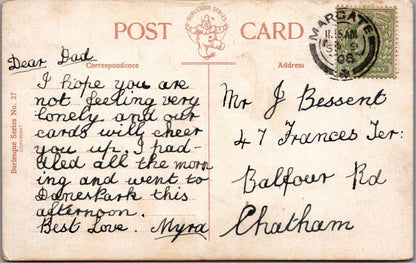 BURLESQUE SERIES
POST CARD
Correspondence
Address
MARGATE
11.15AM
06
Burlesque Series No. 27
COPYRIGHT
Dear Dad
I hope you are
not feeling very
lonely and our
cards will cheer
you up. I pad-
dled all the morn
ing and went to
Danes Park this
afternoon.
Best Love. Myra
Mr J Bessent
47 Frances Ter:
Balfour Rd
Chatham